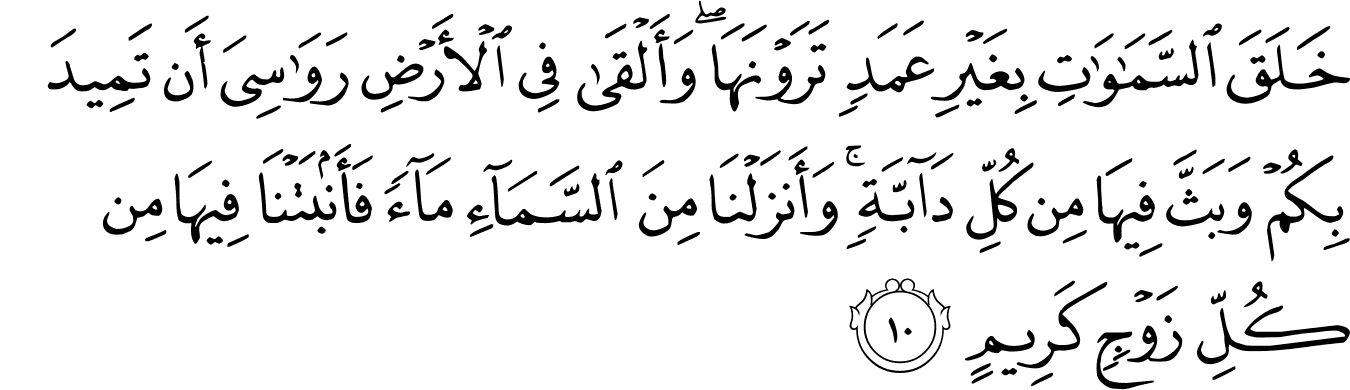 خَلَقَ ٱلسَّمَٰوَٰتِ بِغَيْرِ عَمَدٍ تَرَوْنَهَا ۖ وَأَلْقَىٰ فِى ٱلْأَرْضِ رَوَٰسِىَ أَن تَمِيدَ
بِكُمْ وَبَثَّ فِيهَا مِن كُلِّ دَآبَّةٍ ۚ وَأَنزَلْنَا مِنَ ٱلسَّمَآءِ مَآءً فَأَنۢبَتْنَا فِيهَا مِن
كُلِّ زَوْجٍ كَرِيمٍ ١٠